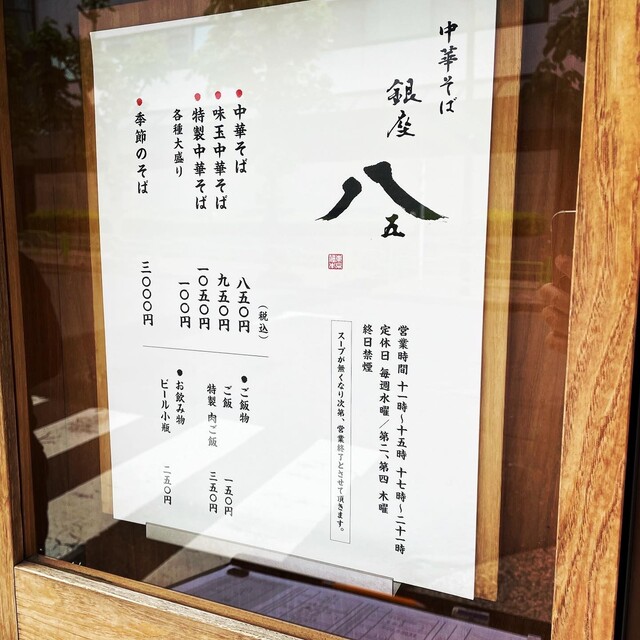 中華そば
銀座
八
五
営業時間 十一時〜十五時 十七時〜二十一時
定休日 毎週水曜／第二、第四 木曜
終日禁煙
スープが無くなり次第、営業終了とさせて頂きます。
（税込）
中華そば 八五〇円
味玉中華そば 九五〇円
特製中華そば 一〇五〇円
各種大盛り 一〇〇円
季節のそば 三〇〇〇円
ご飯物
ご飯 一五〇円
特製 肉ご飯 三五〇円
お飲み物
ビール小瓶 二五〇円